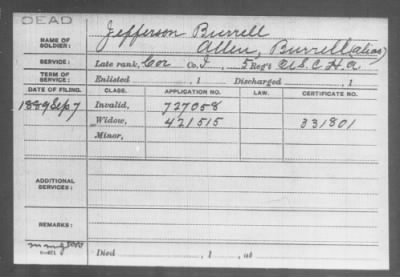 DEAD
NAME OF SOLDIER: Jefferson Burrell
Allen, Burrell (alias)
SERVICE: Late rank, Cor Co. I, 5 Reg't U.S.C.H.A
TERM OF SERVICE: Enlisted , 1 Discharged , 1
DATE OF FILING. CLASS. APPLICATION NO. LAW. CERTIFICATE NO.
1889 Sep 7 Invalid, 727058
Widow, 421515 331801
Minor,
ADDITIONAL SERVICES:
REMARKS:
Died , 1 , at